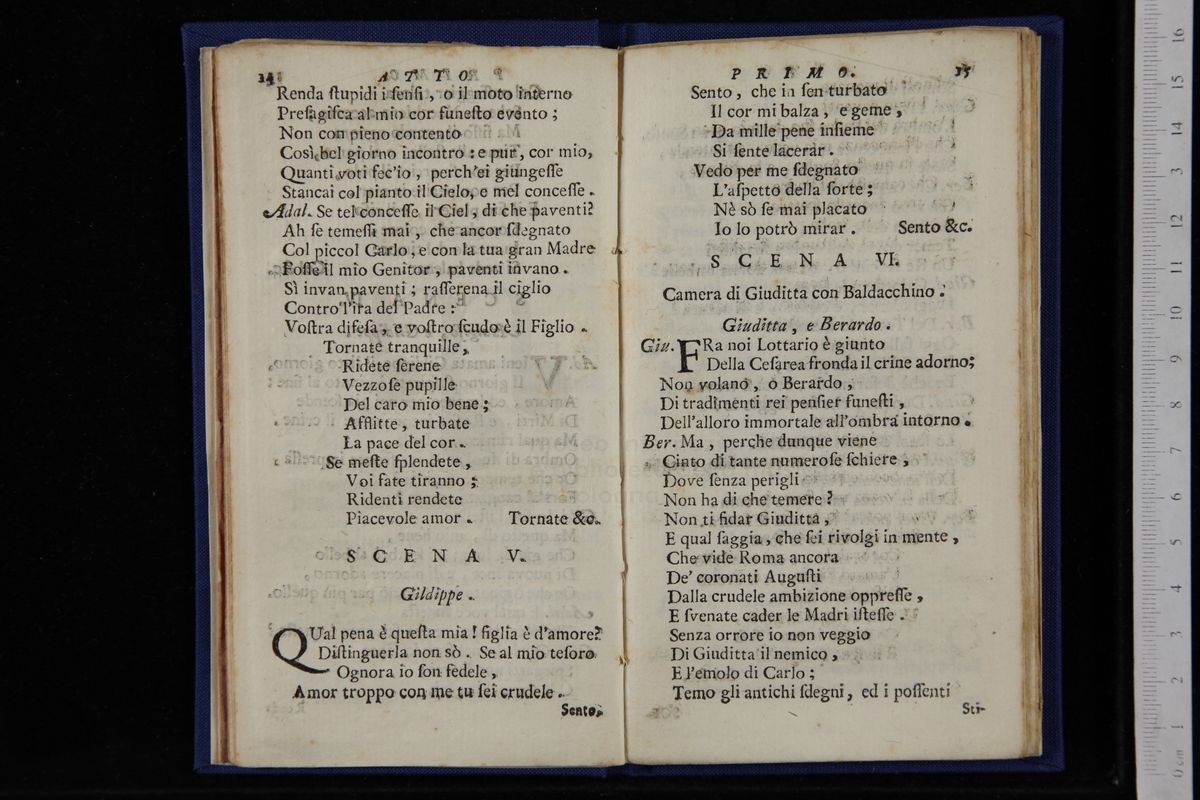 14 ATTO
Renda ſtupidi i ſenſi, o il moto interno
Preſagiſca al mio cor funeſto evento;
Non con pieno contento
Così bel giorno incontro: e pur, cor mio,
Quanti voti fec'io, perch'ei giungeſſe
Stancai col pianto il Cielo, e mel conceſſe.
Adal. Se tel conceſſe il Ciel, di che paventi?
Ah ſe temeſſi mai, che ancor ſdegnato
Col piccol Carlo, e con la tua gran Madre
Foſſe il mio Genitor, paventi invano.
Sì invan paventi; raſſerena il ciglio
Contro l'ira del Padre:
Voſtra difeſa, e voſtro ſcudo è il Figlio.
Tornate tranquille,
Ridete ſerene
Vezzoſe pupille
Del caro mio bene;
Afflitte, turbate
La pace del cor.
Se meſte ſplendete,
Voi fate tiranno;
Ridenti rendete
Piacevole amor. Tornate &c.
SCENA V.
Gildippe.
QUal pena è queſta mia! figlia è d'amore?
Diſtinguerla non sò. Se al mio teſoro
Ognora io ſon fedele,
Amor troppo con me tu ſei crudele.
Sento,
PRIMO. 15
Sento, che in ſen turbato
Il cor mi balza, e geme,
Da mille pene inſieme
Si ſente lacerar.
Vedo per me ſdegnato
L'aſpetto della ſorte;
Nè sò ſe mai placato
Io lo potrò mirar. Sento &c.
SCENA VI.
Camera di Giuditta con Baldacchino.
Giuditta, e Berardo.
Giu. FRa noi Lottario è giunto
Della Ceſarea fronda il crine adorno;
Non volano, o Berardo,
Di tradimenti rei penſier funeſti,
Dell'alloro immortale all'ombra intorno.
Ber. Ma, perche dunque viene
Cinto di tante numeroſe ſchiere,
Dove ſenza perigli
Non ha di che temere?
Non ti fidar Giuditta,
E qual ſaggia, che ſei rivolgi in mente,
Che vide Roma ancora
De' coronati Auguſti
Dalla crudele ambizione oppreſſe,
E ſvenate cader le Madri iſteſſe.
Senza orrore io non veggio
Di Giuditta il nemico,
E l'emolo di Carlo;
Temo gli antichi ſdegni, ed i poſſenti
Sti-